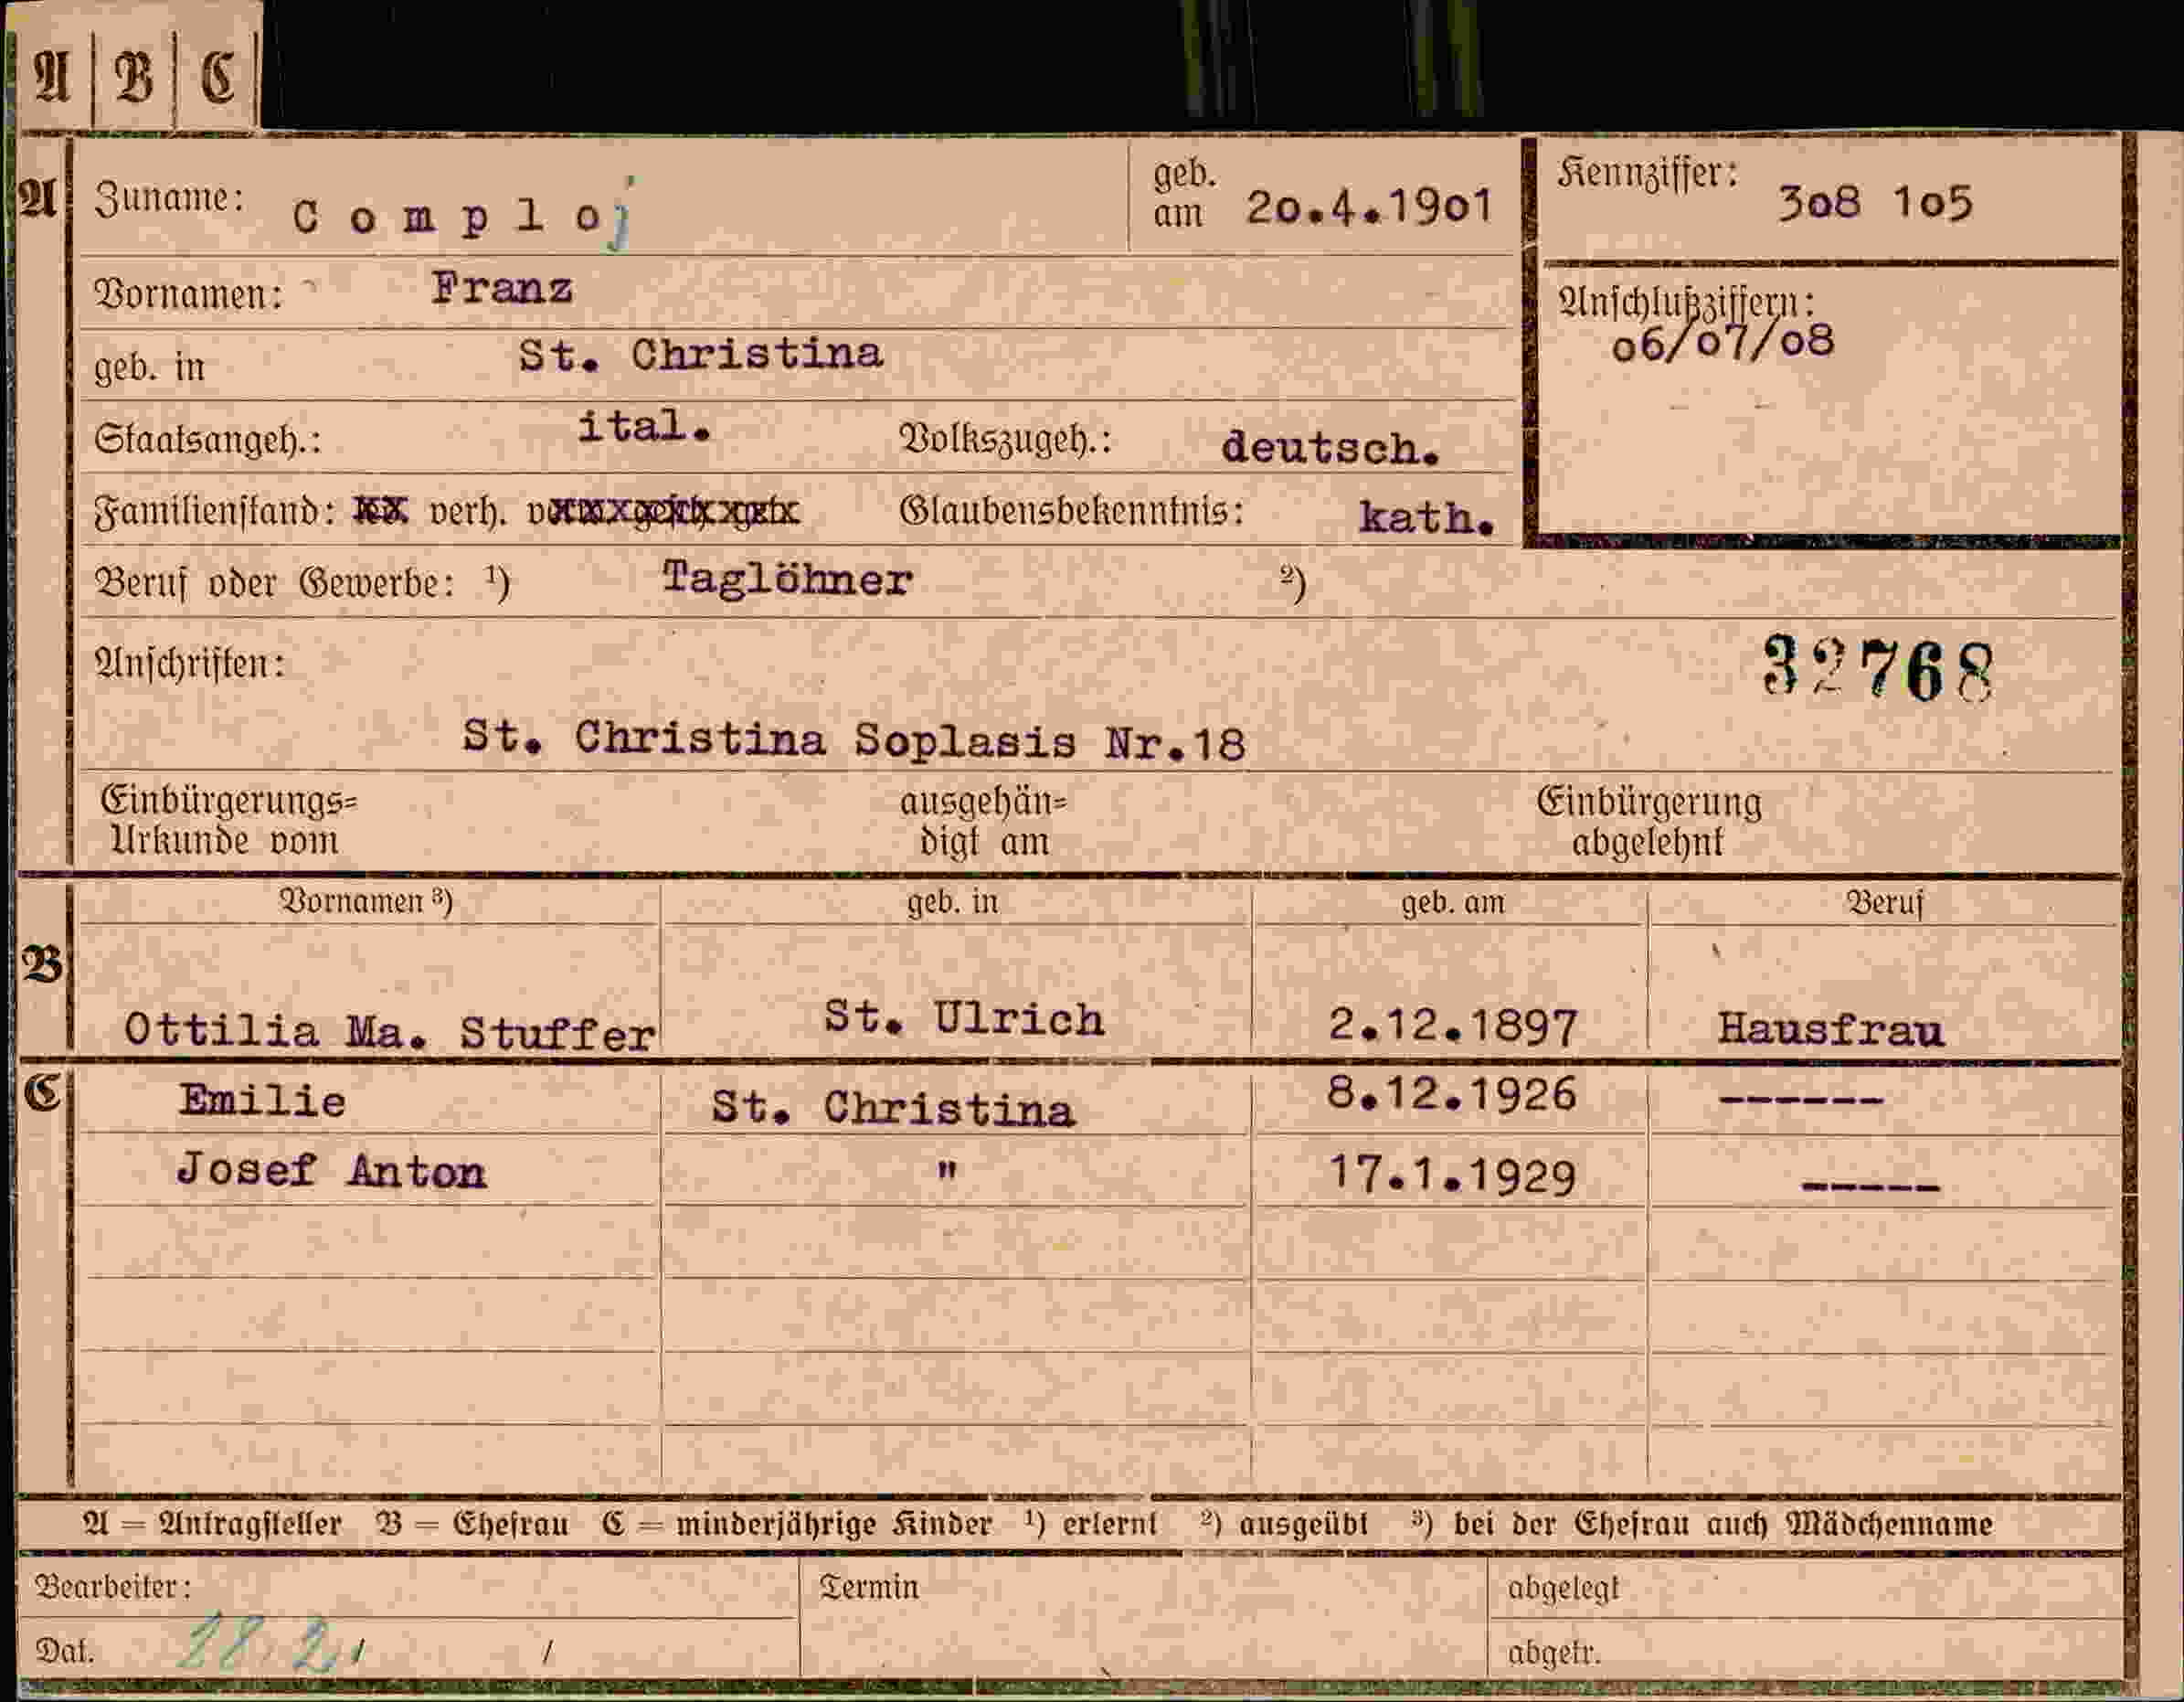 A B C
A Zuname: Comploj geb. am 20.4.1901 Kennziffer: 308 105
Vornamen: Franz
Anschlußziffern:
06/07/08
geb. in St. Christina
Staatsangeh.: ital. Volkszugeh.: deutsch.
Familienstand: verh. Glaubensbekenntnis: kath.
Beruf oder Gewerbe: ¹) Taglöhner ²)
Anschriften: 32768
St. Christina Soplasis Nr.18
Einbürgerungs= ausgehän= Einbürgerung
Urkunde vom digt am abgelehnt
Vornamen ³) geb. in geb. am Beruf
B
Ottilia Ma. Stuffer St. Ulrich 2.12.1897 Hausfrau
C Emilie St. Christina 8.12.1926 ------
Josef Anton " 17.1.1929 -----
A = Antragsteller B = Ehefrau C = minderjährige Kinder ¹) erlernt ²) ausgeübt ³) bei der Ehefrau auch Mädchenname
Bearbeiter: Termin abgelegt
Dat. 28.2. / / abgetr.